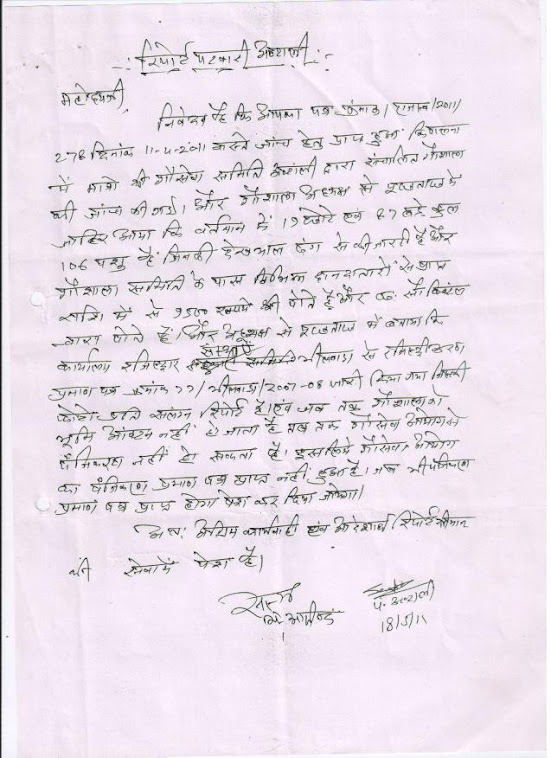 रिपोर्ट पटवारी अंटाली
महोदयजी,
निवेदन है कि आपका पत्र क्रमांक /राजस्व/2011/
278 दिनांक 11-4-2011 वास्ते जांच हेतु प्राप्त हुआ
में गौसेवा समिति अंटाली द्वारा संचालित गौशाला
की जांच की गई। और गौशाला अध्यक्ष से पूछताछ के
जाहिर आया कि वर्तमान में 19 छोटे एवं 87 बड़े कुल
106 पशु है जिनकी देखभाल ढंग से की जा रही है और
गौशाला समिति के पास विभिन्न दानदाताओं से प्राप्त
राशि में से 9500 रूपये की पोते है और सौ क्विंटल
चारा पोते है। और अध्यक्ष से पूछताछ में बताया कि
कार्यालय रजिस्ट्रार संस्थाएं भीलवाड़ा से रजिस्ट्रीकरण
प्रमाण पत्र क्रमांक 77/भीलवाड़ा/2007-08 जारी किया गया जिसकी
फोटो प्रति सलग्न रिपोर्ट है। एवं जब तक गौशाला को
भूमि आंवटन नहीं हो जाता है तब तक गौसेवा आयोग से
पंजिकरण नहीं हो सकता है। इसलिये गौसेवा आयोग
का पंजिकरण प्रमाण पत्र प्राप्त नहीं हुआ है। जब भी पंजिकरण
प्रमाण पत्र प्राप्त होगा पेश कर दिया जावेगा।
अतः अग्रिम कार्यवाही एवं आदेशार्थ रिपोर्ट श्रीमान
की सेवामें पेश है।
प. अंटाली
18/5/11